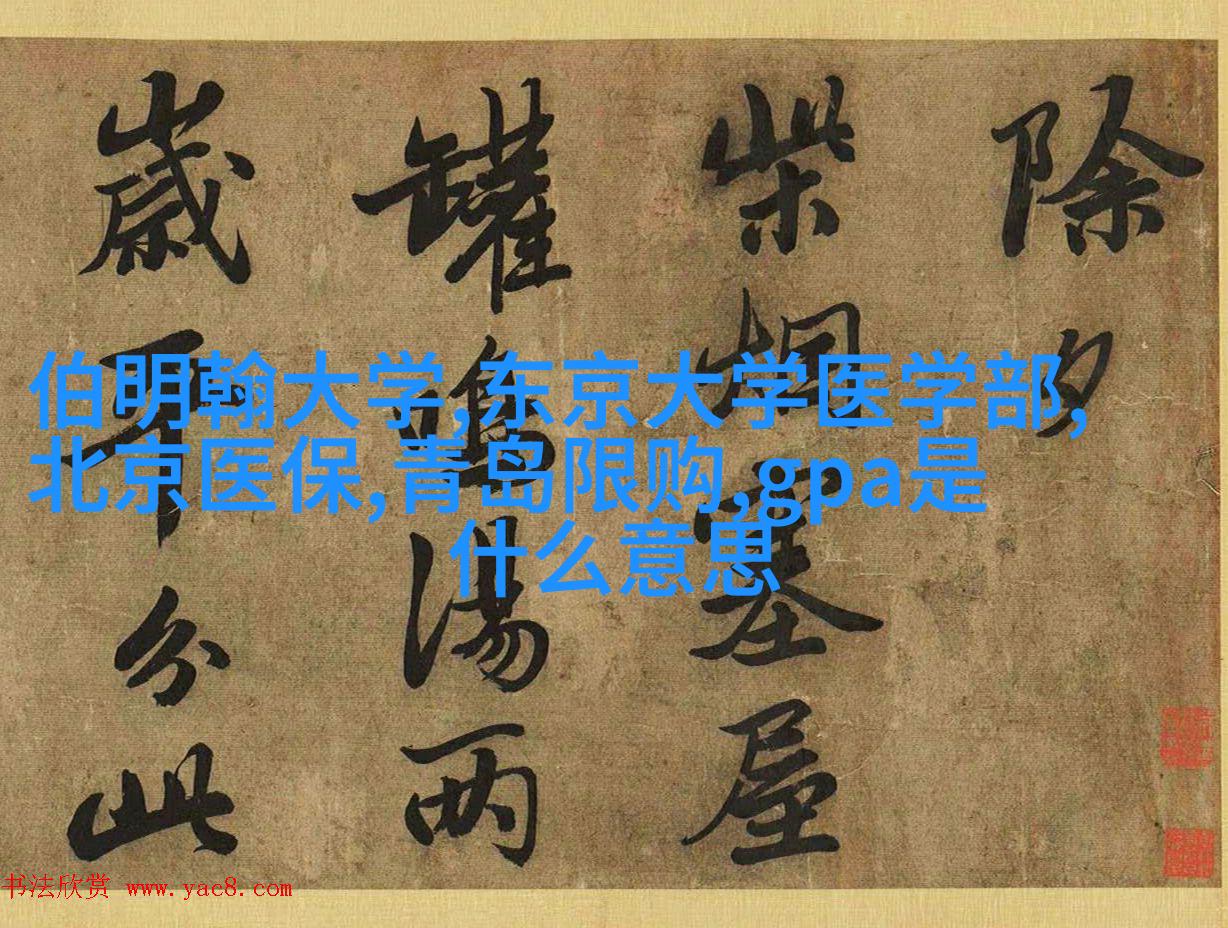 除夕
柴烟塞屋
罐鳴湯兩
歲平分此
伯明翰大学,东京大学医学部,
北京医保,青岛限购,gpa是
什么意思
书法欣赏 www.yac8.com